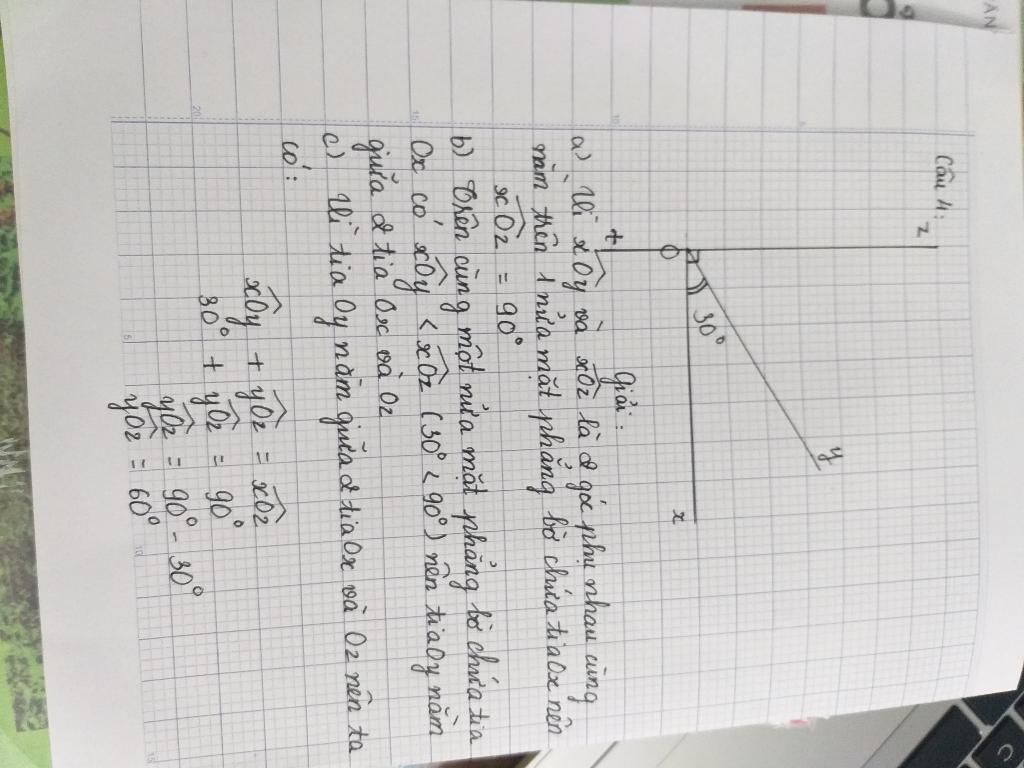 Câu 4:
z
y
30°
O
x
t
Giải:
a) Vì xOy và xOz là 2 góc phụ nhau cùng
nằm trên 1 nửa mặt phẳng bờ chứa tia Ox nên
xOz = 90°
b) Trên cùng một nửa mặt phẳng bờ chứa tia
Ox có xOy < xOz (30° < 90°) nên tia Oy nằm
giữa 2 tia Ox và Oz
c) Vì tia Oy nằm giữa 2 tia Ox và Oz nên ta
có:
xOy + yOz = xOz
30° + yOz = 90°
yOz = 90° - 30°
yOz = 60°